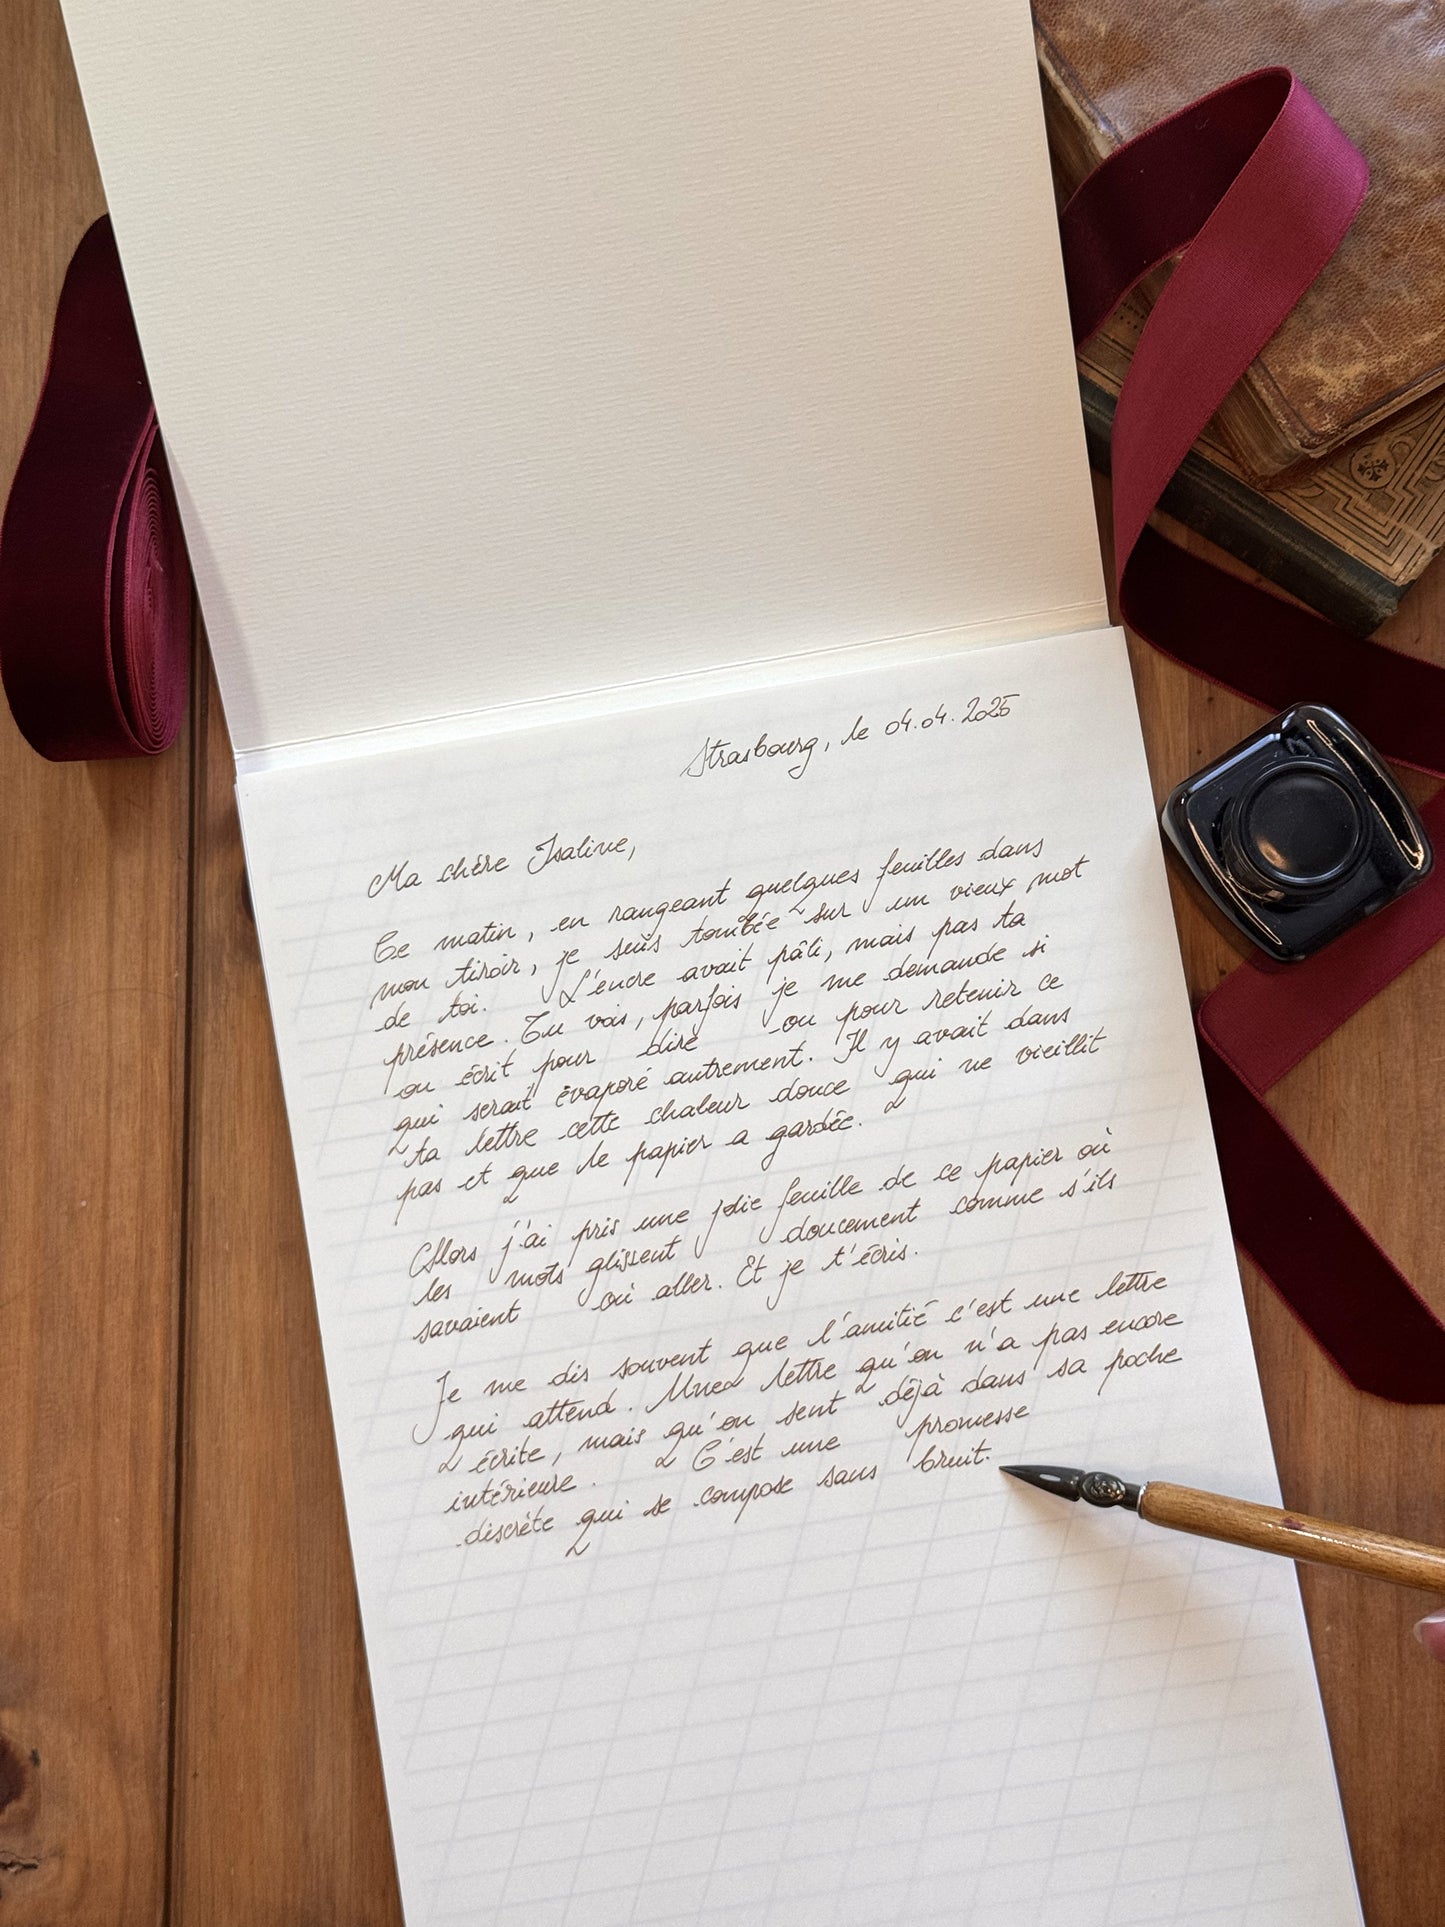 Strasbourg, le 04.04.2025
Ma chère Isaline,
Ce matin, en rangeant quelques feuilles dans
mon tiroir, je suis tombée sur un vieux mot
de toi. L'encre avait pâli, mais pas ta
présence. Tu vois, parfois je me demande si
on écrit pour dire ou pour retenir ce
qui serait évaporé autrement. Il y avait dans
ta lettre cette chaleur douce qui ne vieillit
pas et que le papier a gardée.
Alors j'ai pris une jolie feuille de ce papier où
les mots glissent doucement comme s'ils
savaient où aller. Et je t'écris.
Je me dis souvent que l'amitié c'est une lettre
qui attend. Une lettre qu'on n'a pas encore
écrite, mais qu'on sent déjà dans sa poche
intérieure. C'est une promesse
discrète qui se compose sans bruit.